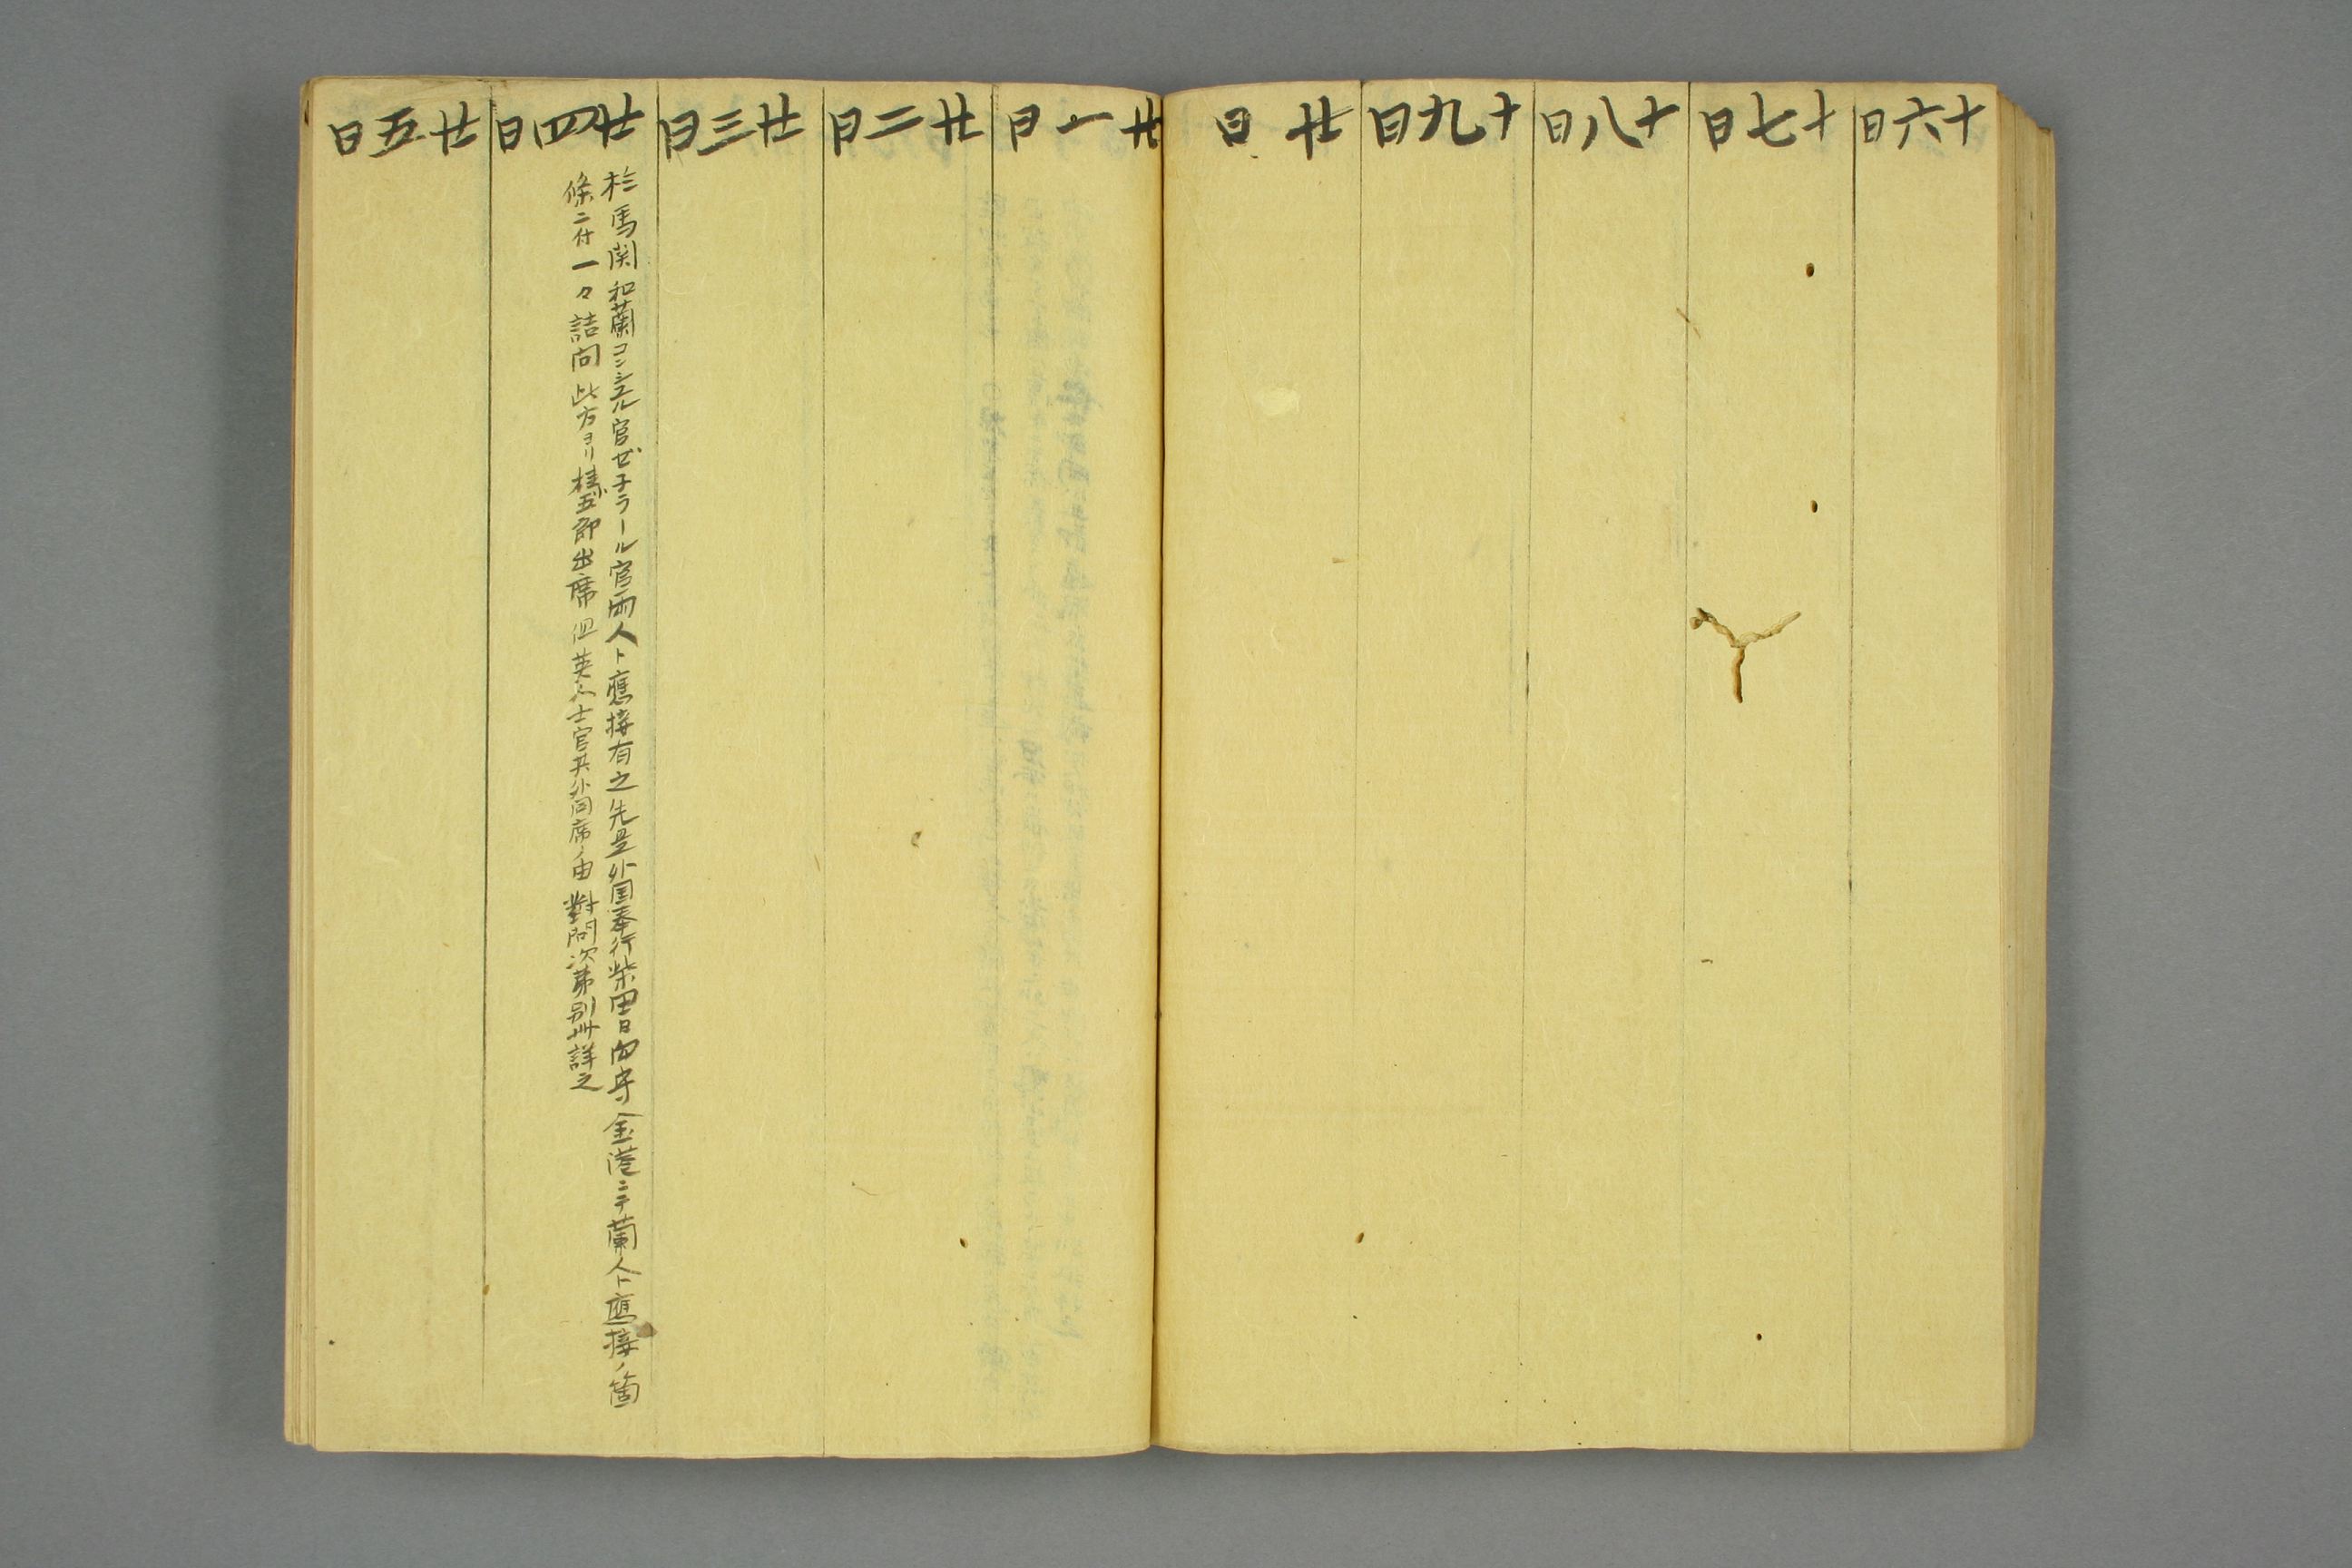 十六日
十七日
十八日
十九日
廿日
廿一日
廿二日
廿三日
廿四日
於馬関和蘭コンシユル官ゼ子ラール官両人ト應接有之先是外国奉行柴田日向守金港ニテ蘭人ト應接ノ箇
條ニ付一々詰問此方ヨリ桂小五郎出席但英人士官其外同席ノ由對問次第別冊詳之
廿五日